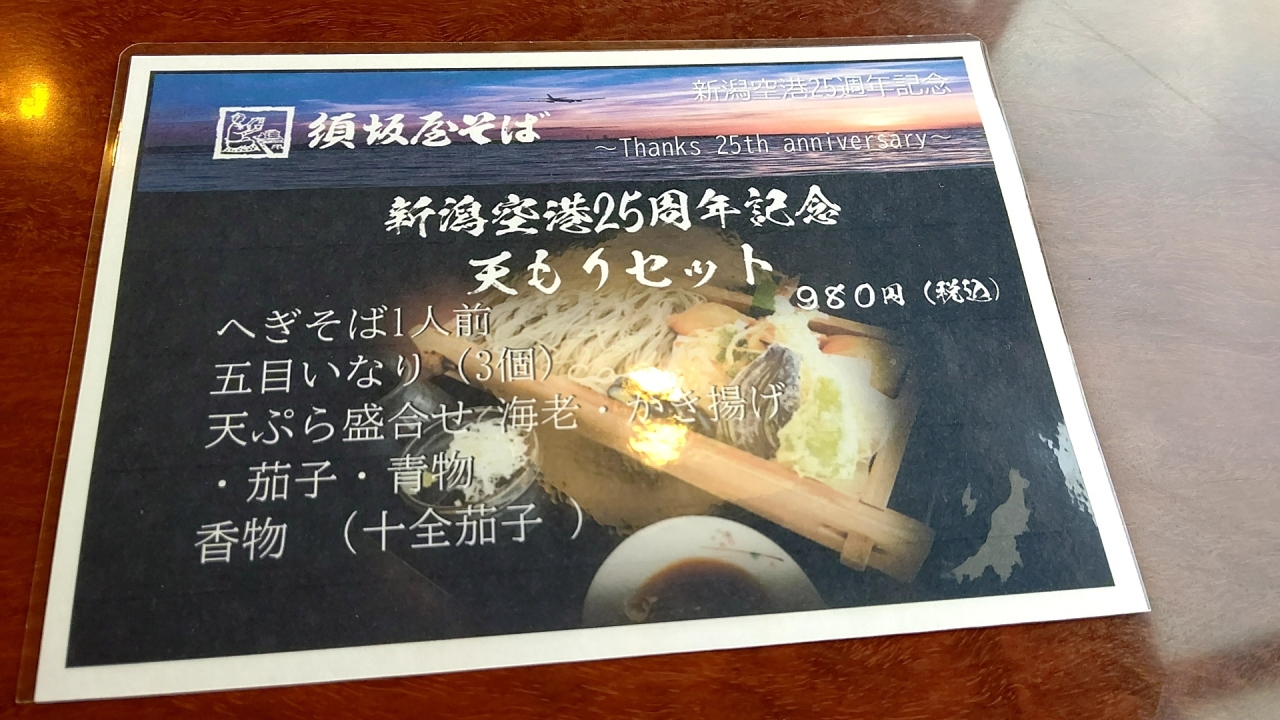 新潟空港25週年記念
須坂屋そば
～Thanks 25th anniversary～
新潟空港25周年記念
天もりセット
980円（税込）
へぎそば1人前
五目いなり（3個）
天ぷら盛合せ 海老・かき揚げ
・茄子・青物
香物　（十全茄子　）